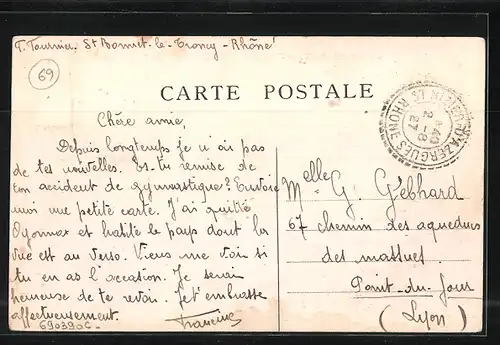 T. Tournier. St Bonnet-le-Troncy-Rhône
69
CARTE POSTALE
Chère amie,
Depuis longtemps je n'ai pas
de tes nouvelles. Es-tu remise de
ton accident de gymnastique? Envoie
moi une petite carte. J'ai quitté
Oyonnax et habite le pays dont la
vue est au verso. Viens me voir si
tu en as l'occasion. Je serai
heureuse de te revoir. Je t'embrasse
affectueusement.
Francine
690390C
Melle G. Gebhard
67 chemin des aqueducs
des massues.
Point-du-Jour
(Lyon)
RHONE